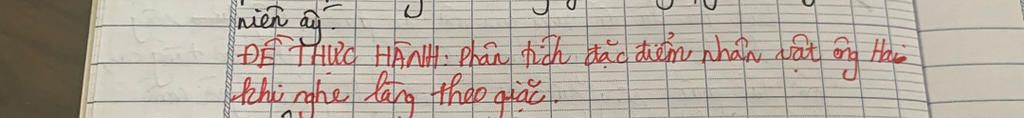 niên ấy.
ĐỀ THỰC HÀNH: Phân tích đặc điểm nhân vật ông Hai
khi nghe làng theo giặc.